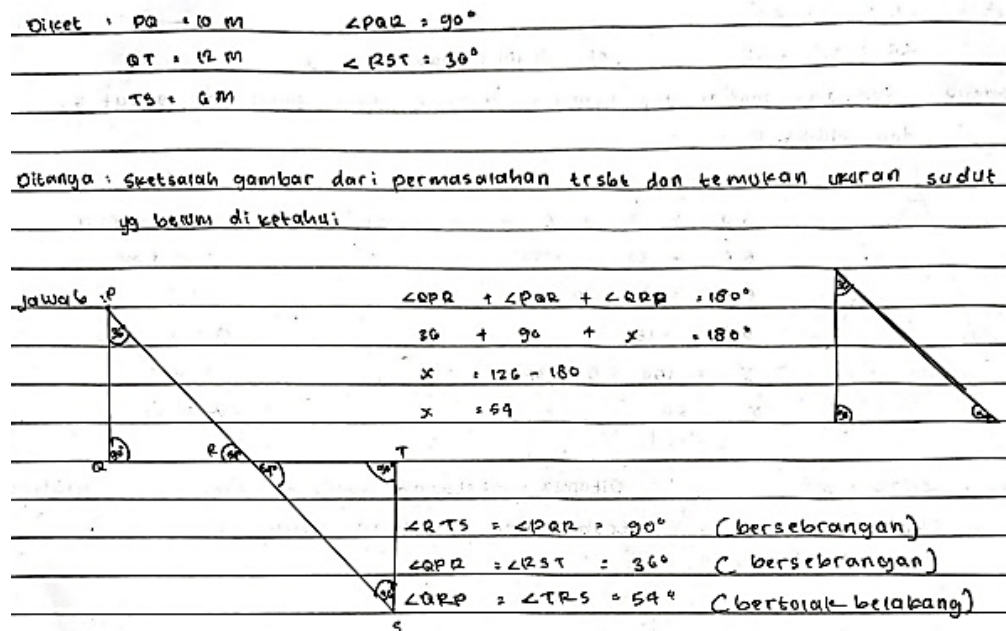 Diket : PQ = 10 m ∠PQR = 90°
QT = 12 m ∠RST = 36°
TS = 6 m
Ditanya : Sketsalah gambar dari permasalahan trsbt dan temukan ukuran sudut
yg belum diketahui
Jawab :
P
36°
Q
90°
R
54°
54°
T
90°
36°
S
∠QPR + ∠PQR + ∠QRP = 180°
36 + 90 + x = 180°
x = 126 - 180
x = 54
∠RTS = ∠PQR = 90° (bersebrangan)
∠QPR = ∠RST = 36° (bersebrangan)
∠QRP = ∠TRS = 54° (bertolak belakang)